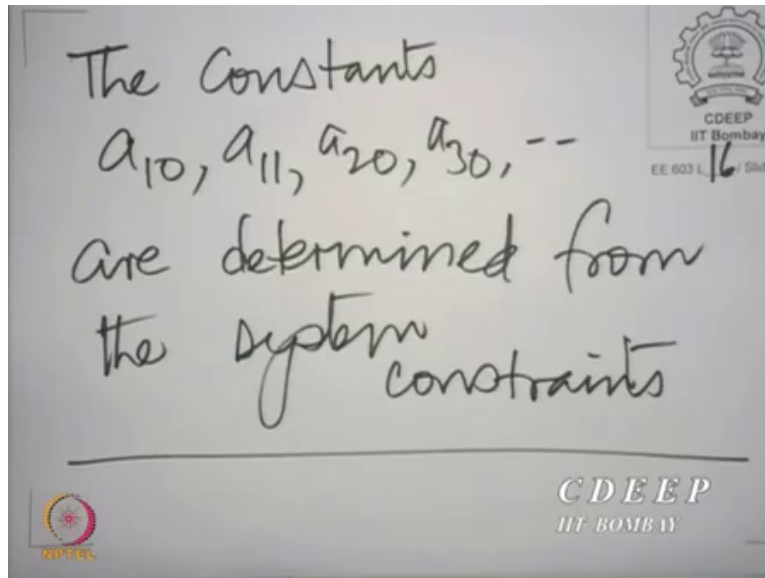 The Constants
a10, a11, a20, a30, --
are determined from
the system
constraints
CDEEP
IIT Bombay
EE 603 L 16 / Slid
CDEEP
IIT BOMBAY
NPTEL